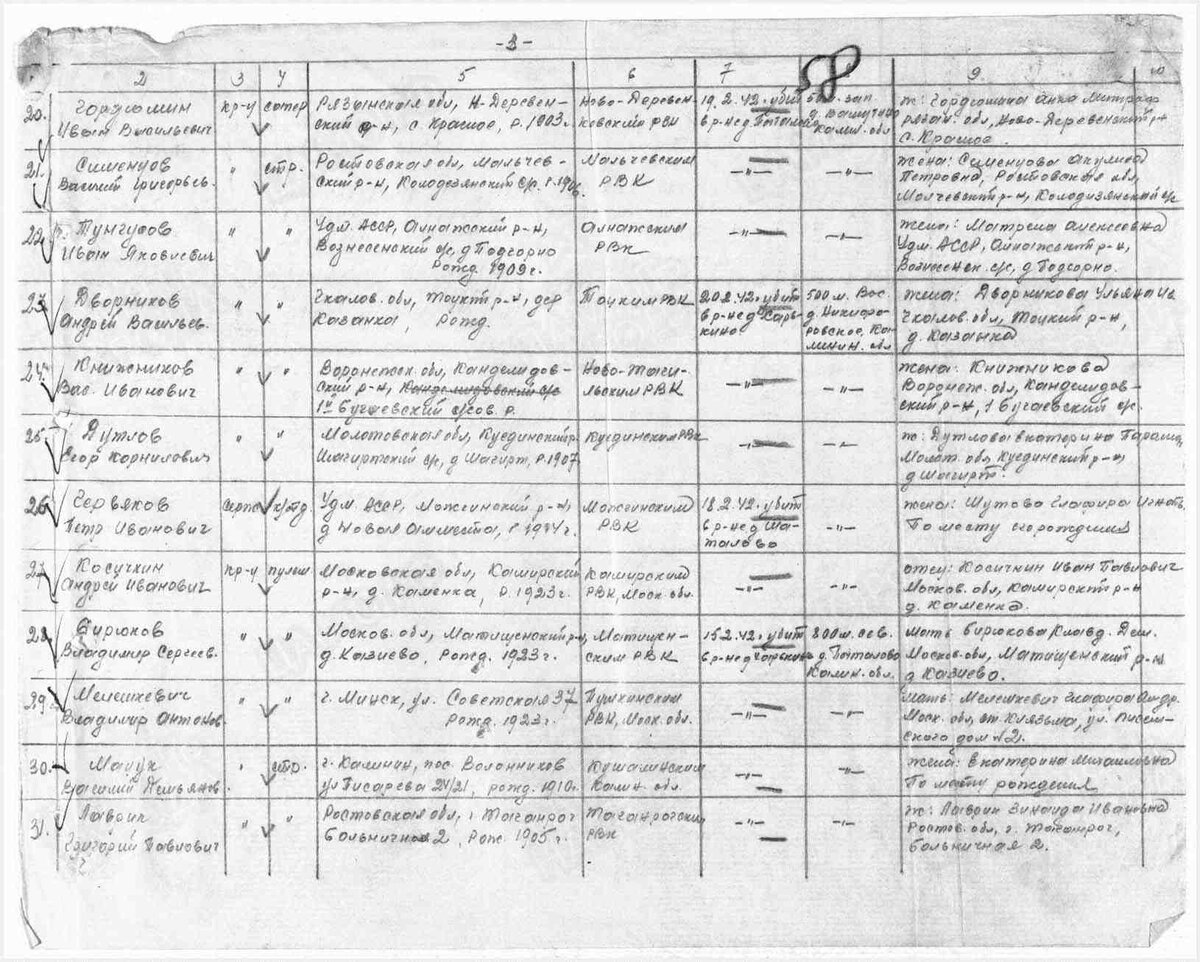 -3-
58
2 3 4 5 6 7 9. 10
20. Гордюшин Иван Васильевич кр-ц сапер Рязанская обл, Н-Деревенский р-н, с. Красное, р. 1903г. Ново-Деревенковским РВК 19.2.42. убит в р-не д. 500м. зап. Калин. обл ж: Гордюшина Анна Митроф Рязан. обл, Ново-Деревенский р-н с. Красное
21. Сименцов Василий Григорьев. " стр. Ростовская обл, Мальчевский р-н, Колодезянский с/с. р. 1906. Мальчевским РВК -"- -"- жена: Сименцова Акулина Петровна, Ростовская обл, Малчевский р-н, Колодизянский с/с
22. Тунгусов Иван Яковлевич " " Удм. АССР, Алнажский р-н, Вознесенский с/с, д Подгорно Рожд. 1909г. Алнажским РВК -"- -"- жена: Матрена Алексеевна Удм. АССР, Алнажский р-н, Вознесенск. с/с, д. Подгорно.
23. Дворников Андрей Васильев. " " Чкалов. обл, Тоцкий р-н, дер Казанка, Рожд. Тоцким РВК 20.2.42. убит в р-не д 500 м. Вос. д. Калинин. обл жена: Дворникова Ульяна Ив Чкалов. обл, Тоцкий р-н, д. Казанка
24. Книжников Вас. Иванович " " Воронежск. обл, Кандемидовский р-н, Кандемидовский с/с 1й Бугаевский с/сов. р. РВК -"- -"- жена: Книжникова Воронеж. обл, Кандемидовский р-н, 1 Бугаевский с/с.
25. Дутлов Егор Корнилович " " Молотовская обл, Куединский р- Шагиртский с/с, д Шагирт, р. 1907 Куединским РВК -"- -"- ж: Дутлова Екатерина Молот. обл, Куединский р-н, д Шагирт.
26. Червяков Петр Иванович Удм. АССР, Можгинский р-н, д Новая р 1914г. Можгинским РВК 18.2.42. убит в р-не д Шаталово -"- жена: Шутова Глафира Игнат. По месту его рождения
27. Косичкин Андрей Иванович кр-ц Московская обл, Каширский р-н, д. Каменка, р. 1923г. Каширским РВК, Моск. обл. -"- -"- отец: Косичкин Иван Павлович Москов. обл, Каширский р-н д. Каменка.
28. Бирюков Владимир Сергеев. " " Москов. обл, Матищенский р-н, д. Казиево, Рожд. 1923г. Матищенским РВК 15.2.42. убит в р-не д 800м. сев. д. Калин. обл. мать Бирюкова Клавд. Дем. Москов. обл, Матищенский р-н д Казиево.
29. Мелешкевич Владимир Антонов. " " г. Минск, ул. Советская 37 Рожд. 1923г. Пушкинским РВК, Моск. обл. -"- -"- мать: Мелешкевич Глафира Андр. Моск. обл, ст. Клязьма, ул. дом №2.
30. Василий Демьянов. " стр. г. Калинин, пос. ул Писарева 24/21, рожд. 1910г. Кушалинским Калин. обл. -"- -"- жена: Екатерина Михайловна По месту рождения
31. Григорий Павлович " " Ростовская обл, г. Таганрог больничная 2, Рож. 1905г. Таганрогским РВК -"- -"- ж: Зинаида Ивановна Ростов. обл, г. Таганрог, больничная 2.